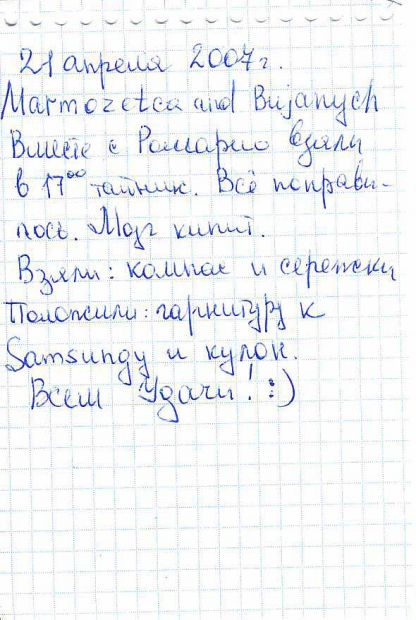 21 апреля 2007г.
Marmozetca and Bujanych
Вместе с Ромарио взяли
в 17⁰⁰ тайник. Всё понрави-
лось. Мозг кипит.
Взяли: компас и сережки
Положили: гарнитуру к
Samsungу и кулон.
Всем Удачи! :)